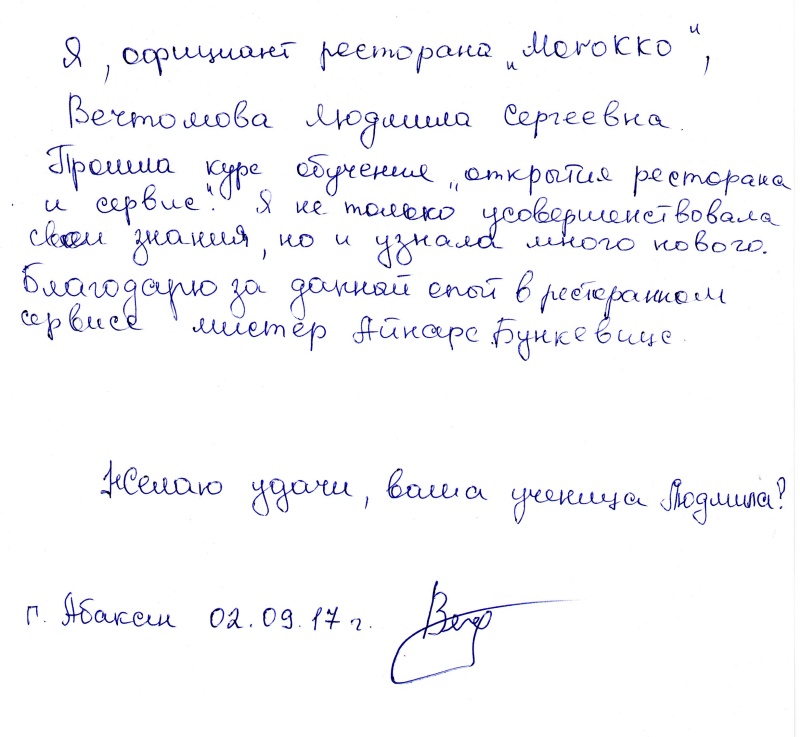 Я, официант ресторана „Morokko",
Вечтомова Людмила Сергеевна.
Прошла курс обучения „открытия ресторана
и сервис". Я не только усовершенствовала
свои знания, но и узнала много нового.
Благодарю за данный опыт в ресторанном
сервисе мистер Айнарс Бункевицс.
Желаю удачи, ваша ученица Людмила!
г. Абакан 02.09.17 г.